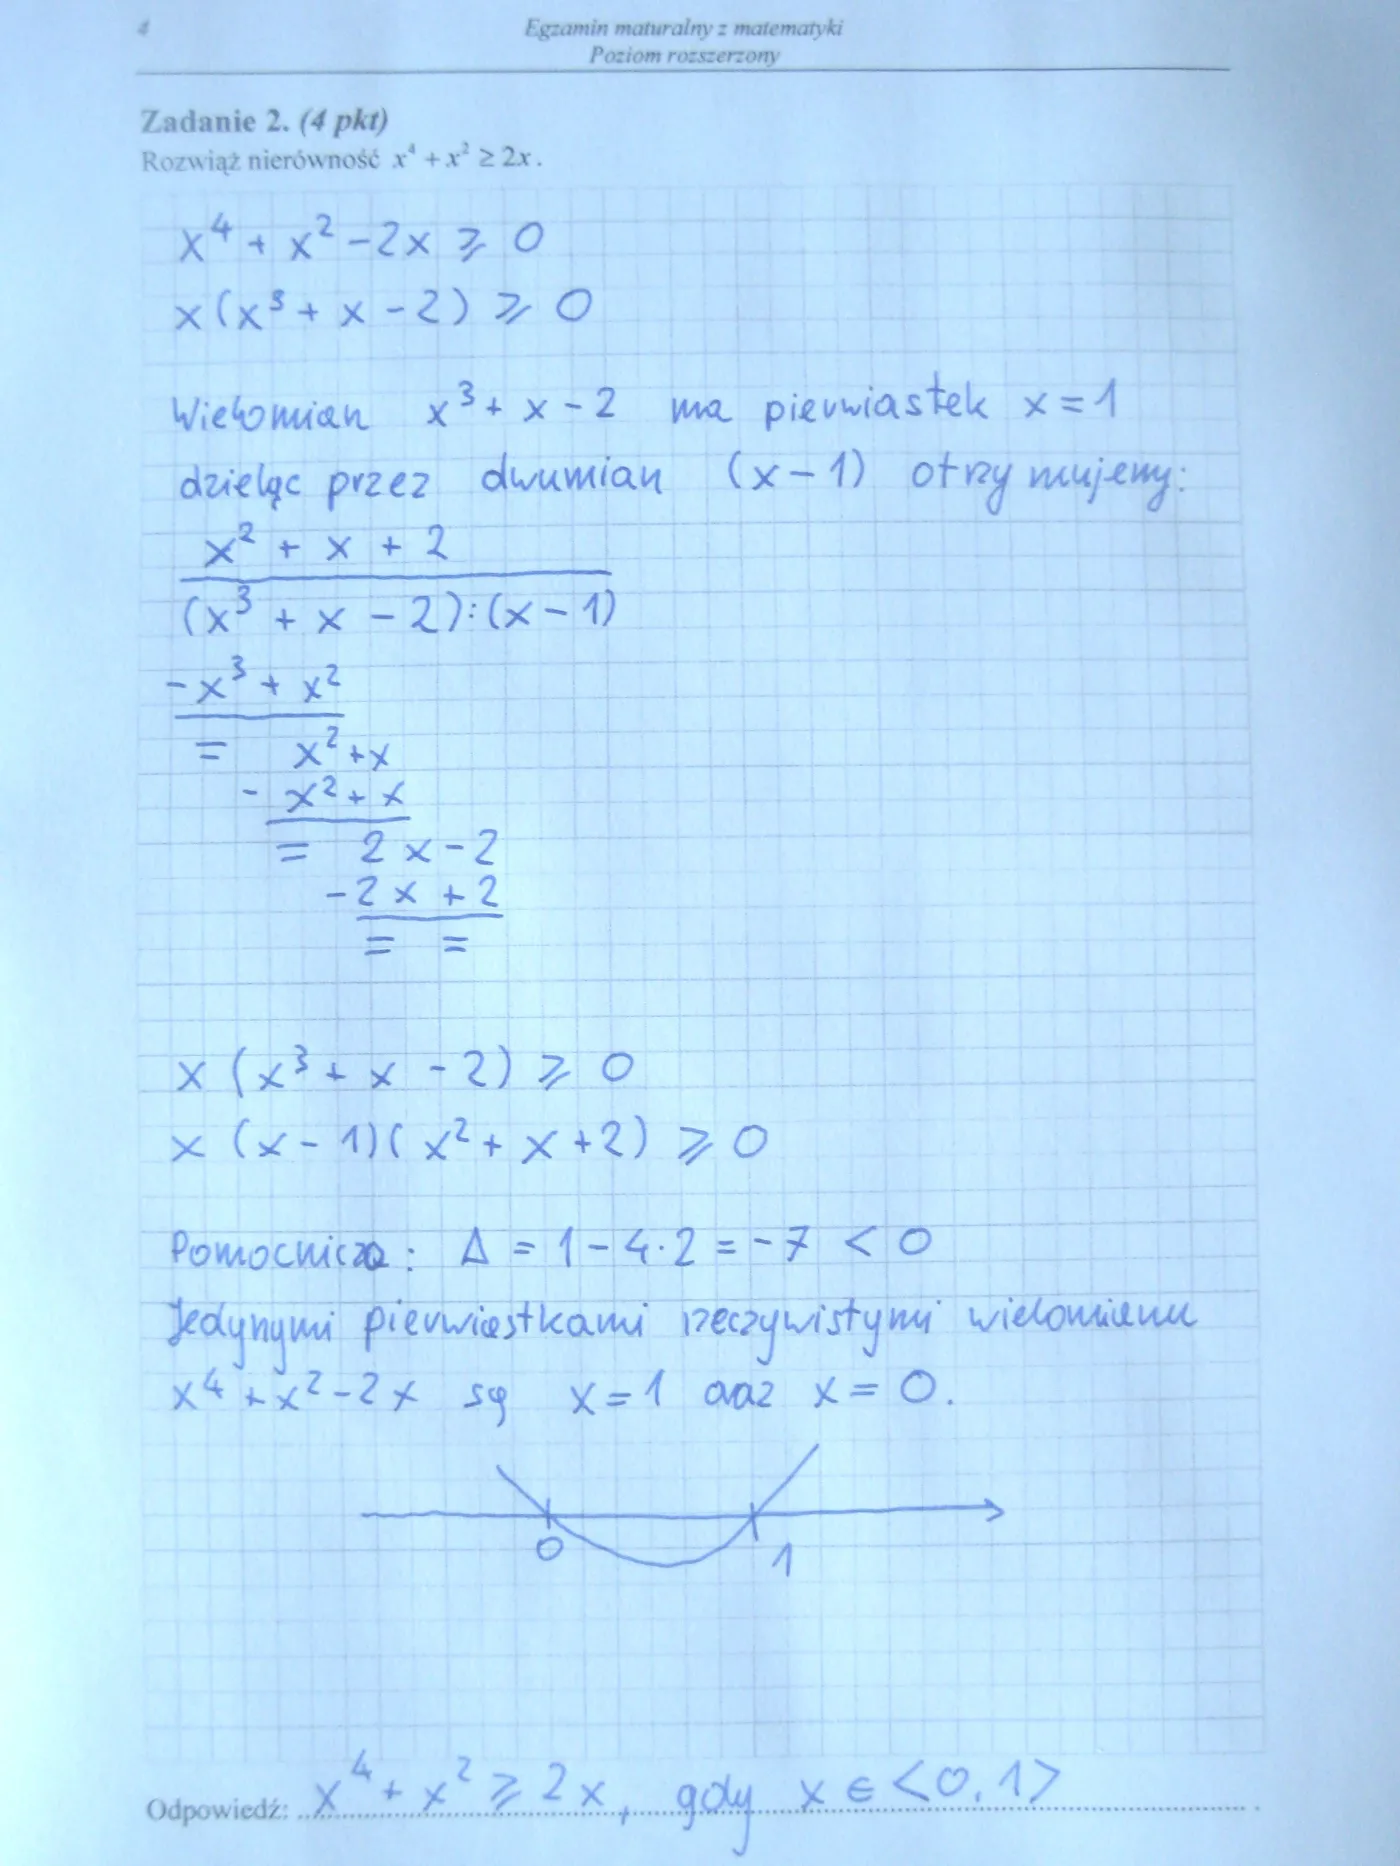 4
Egzamin maturalny z matematyki
Poziom rozszerzony
Zadanie 2. (4 pkt)
Rozwiąż nierówność x⁴ + x² ≥ 2x.
x⁴ + x² - 2x ≥ 0
x(x³ + x - 2) ≥ 0
Wielomian x³ + x - 2 ma pierwiastek x = 1
dzieląc przez dwumian (x - 1) otrzymujemy:
x² + x + 2
(x³ + x - 2):(x - 1)
-x³ + x²
= x² + x
- x² + x
= 2x - 2
-2x + 2
= =
x (x³ + x - 2) ≥ 0
x (x - 1)(x² + x + 2) ≥ 0
Pomocniczo: Δ = 1 - 4·2 = -7 < 0
Jedynymi pierwiastkami rzeczywistymi wielomianu
x⁴ + x² - 2x są x = 1 oraz x = 0.
0 1
Odpowiedź: x⁴ + x² ≥ 2x, gdy x ∈ <0,1>